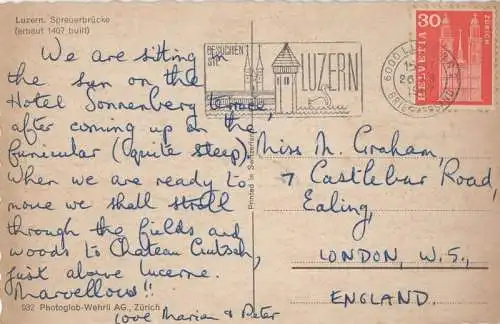 Luzern. Spreuerbrücke
(erbaut 1407 built)
We are sitting in
the sun on the
Hotel Sonnenberg terrace,
after coming up on the
funicular (quite steep)
When we are ready to
move we shall stroll
through the fields and
woods to Chateau Gutsch,
just above Lucerne.
Marvellous!!
love Marian & Peter
932 Photoglob-Wehrli AG., Zürich
Printed in
BESUCHEN
SIE
LUZERN
6000
30
HELVETIA
ZÜRICH
Miss M. Graham,
7 Castlebar Road,
Ealing,
LONDON, W.5.,
ENGLAND.